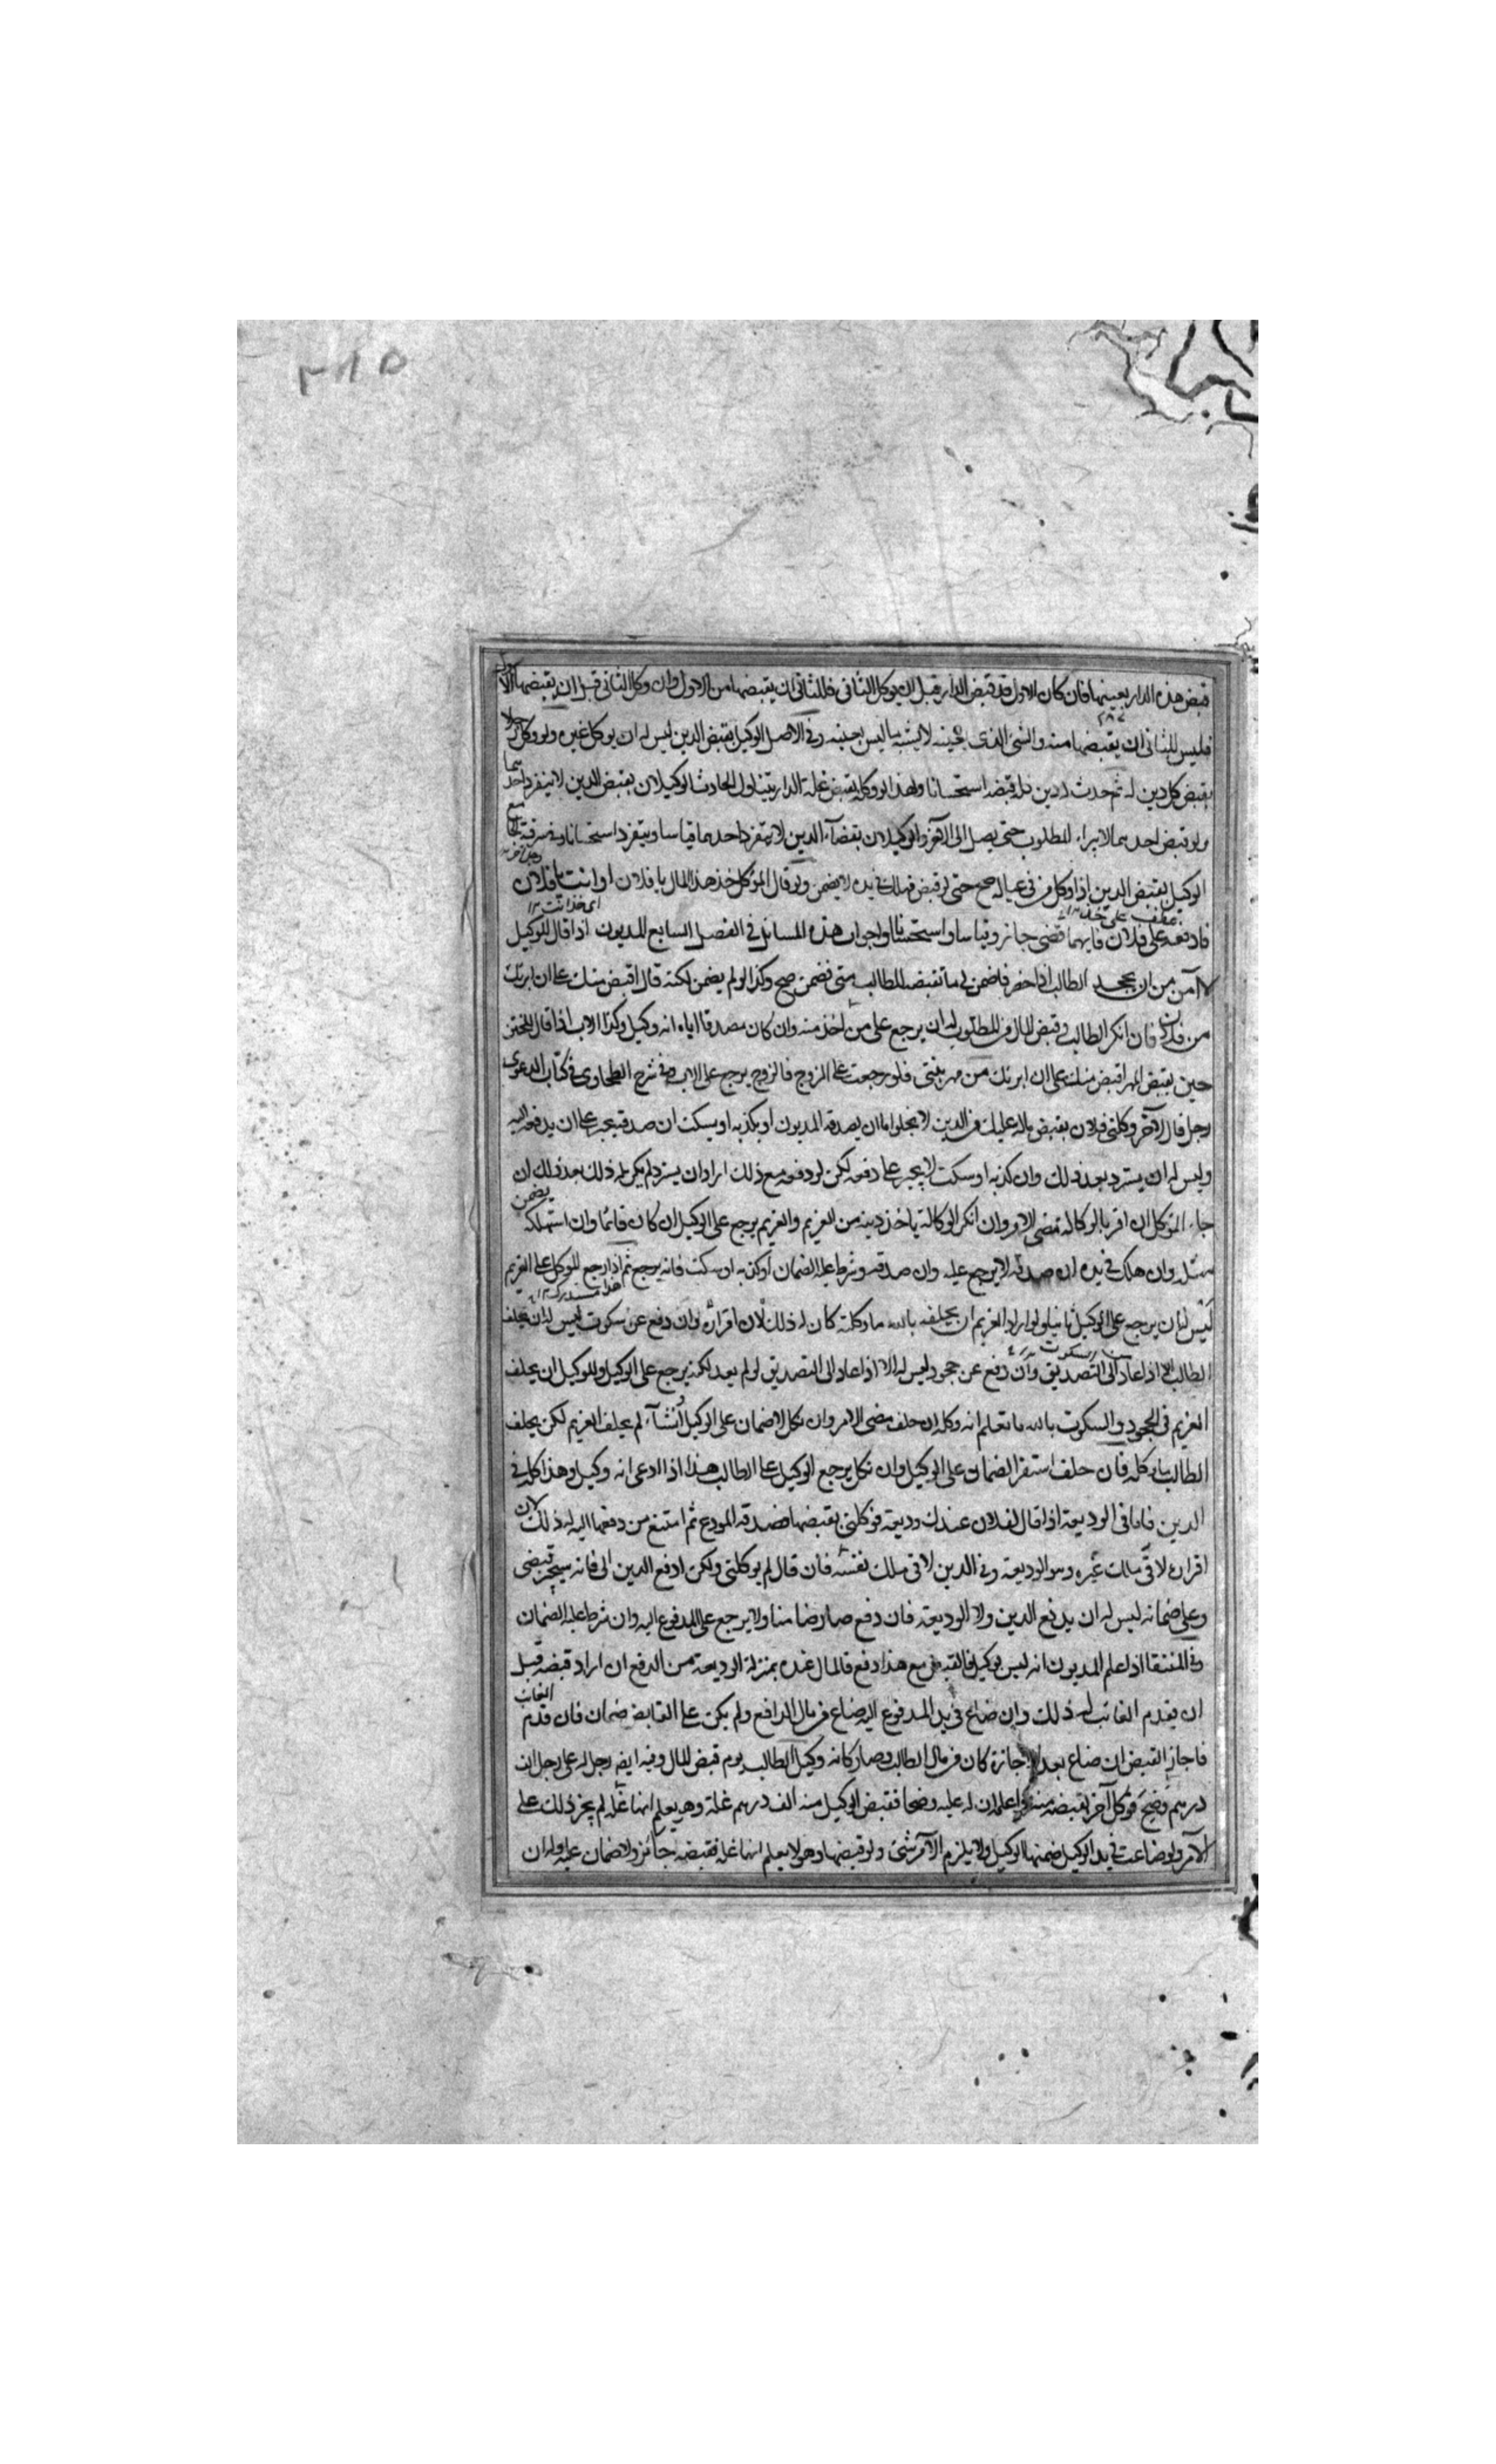 ٣٨٥
قبض هذه الدار بعينها فان كان الاول قد قبض الدار قبل ان يوكل الثاني فللثاني ان يقبضها من الاول وان وكل الثاني قبل ان يقبضها الاول
فليس للثاني ان يقبضها منه والشئ الذي بعينه لا يشبه ما ليس بعينه وفي الاصل الوكيل بقبض الدين ليس له ان يوكل غيره ولو وكل رجلا
بقبض كل دين له ثم حدث له دين فله قبضه استحسانا ولهذا لو وكله بقبض غلة الدار يتناول الحادث الوكيلان بقبض الدين لا ينفرد احدهما
ولو قبض احدهما لا يبراء المطلوب حتى يصل الى الآخر والوكيلان بقضآء الدين لا يتفرد احدهما قياسا ويتفرد استحسانا
الوكيل بقبض الدين اذا وكل من في عياله صح حتى لو قبض فهلك في يده لا يضمن ولو قال الموكل خذ هذا المال يا فلان او انت يا فلان
عطف على خذ اى خذ انت
فادفعه على فلان فايهما قضى جاز وقياسا واستحسانا واجوان هذه المسائل في الفصل السابع المديون اذا قال للوكيل
لا آمن من ان يجحد الطالب اذا حضر فاضمن لي ما تقبضه للطالب متى فضمن صح وكذا لو لم يضمن لكنه قال اقبض منك على ان ابرئك
من فلان فان انكر الطالب قبض المال من المطلوب له ان يرجع على من اخذ منه وان كان مصدقا اياه انه وكيل وكذا الاب اذا قال للختن
حين يقبض المهر اقبض منك على ان ابرئك من مهر بنتي فلو رجعت على الزوج فالزوج يرجع على الاب وفي شرح الطحاوى في كتاب الدعوى
رجل قال لآخر وكلني فلان بقبض ماله عليك من الدين لا يخلو اما ان يصدقه المديون او يكذبه او يسكت ان صدقه يجبر على ان يدفعه اليه
وليس له ان يسترد بعد ذلك وان كذبه او سكت لا يجبر على دفعه لكن لو دفعه مع ذلك اراد ان يسترد لم يكن له ذلك بعد ذلك ان
جاء الموكل ان اقر بالوكالة مضى الامر وان انكر الوكالة ياخذ دينه من الغريم والغريم يرجع على الوكيل ان كان قائما وان استهلكه يضمن
مثله وان هلك في يده ان صدقه لا يرجع عليه وان صدقه وشرط عليه الضمان او كذبه او سكت فانه يرجع ثم اذا رجع الموكل على الغريم
ليس له ان يرجع على الوكيل ثانيا ولو اراد الغريم ان يحلفه بالله ما وكلته كان له ذلك لان اقراره وان دفع عن سكوت ليس له ان يحلف
الطالب الا اذا عاد الى التصديق وان دفع عن جحود ليس له الا اذا عاد الى التصديق لو لم يعد لكنه يرجع على الوكيل وللوكيل ان يحلف
الغريم في الجحود والسكوت بالله ما تعلم انه وكله ان حلف مضى الامر وان نكل لا ضمان على الوكيل انشآء لم يحلف الغريم لكن يحلف
الطالب ما وكله فان حلف استقر الضمان على الوكيل وان نكل يرجع الوكيل على الطالب هذا اذا ادعى انه وكيل وهذا كله في
الدين فاما في الوديعة اذا قال لفلان عندك وديعة فوكلني بقبضها فصدقه المودع ثم امتنع من دفعها اليه له ذلك لان
اقراره لاقى ملك غيره وهو الوديعة وفي الدين لاقى ملك نفسه فان قال لم يوكلني ولكن ادفع الدين الى فانه سيجيز قبضى
وعلى ضمانه ليس له ان يدفع الدين ولا الوديعة فان دفع صار ضامنا ولا يرجع على المدفوع اليه وان شرط عليه الضمان
وفي المنتقا اذا علم المديون انه ليس بوكيل في القبض مع هذا دفع فالمال عنده بمنزلة الوديعة من الدفع ان اراد قبضه قبل
ان يقدم الغائب له ذلك وان ضاع في يد المدفوع اليه ضاع من مال الدافع ولم يكن على القابض ضمان فان قدم الغائب
فاجاز القبض ان ضاع بعد الاجازة كان من مال الطالب وصار كانه وكيل الطالب يوم قبض المال وفيه ايضه رجل له على رجل الف
درهم وضح فوكل آخر بقبضه منه واعلمه ان له عليه وضحا فقبض الوكيل منه الف درهم غلة وهو يعلم انها غلة لم يجز ذلك على
الآمر ولو ضاعت في يد الوكيل ضمنها الوكيل ولا يلزم الآمر شئ ولو قبضها وهو لا يعلم انها غلة فقبضه جائز ولا ضمان عليه وله ان